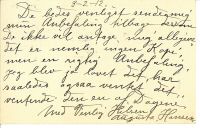 9-2-12.
De bedes venligst sendigong
min Anbefaling tilbage dersom
De ikke vil antage mig alligevel
det er nemlig ingen Kopi,
men en rigtig Anbefaling,
jeg blev jo lovet det, har
saaledes ogsaa ventet det,
ventende den en af Dagene
Med Venlig Hilsen
Augusta Hansen